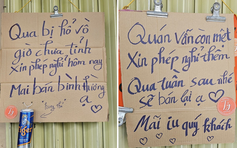 Qua bị hổ vồ
giờ chưa tỉnh
Xin phép nghỉ hôm nay
Mai bán bình thường
ạ
Tiger
Quan vẫn còn mệt
Xin phép nghỉ thêm
Qua tuần sau nhé
sẽ bán lại ạ
Mãi iu quý khách